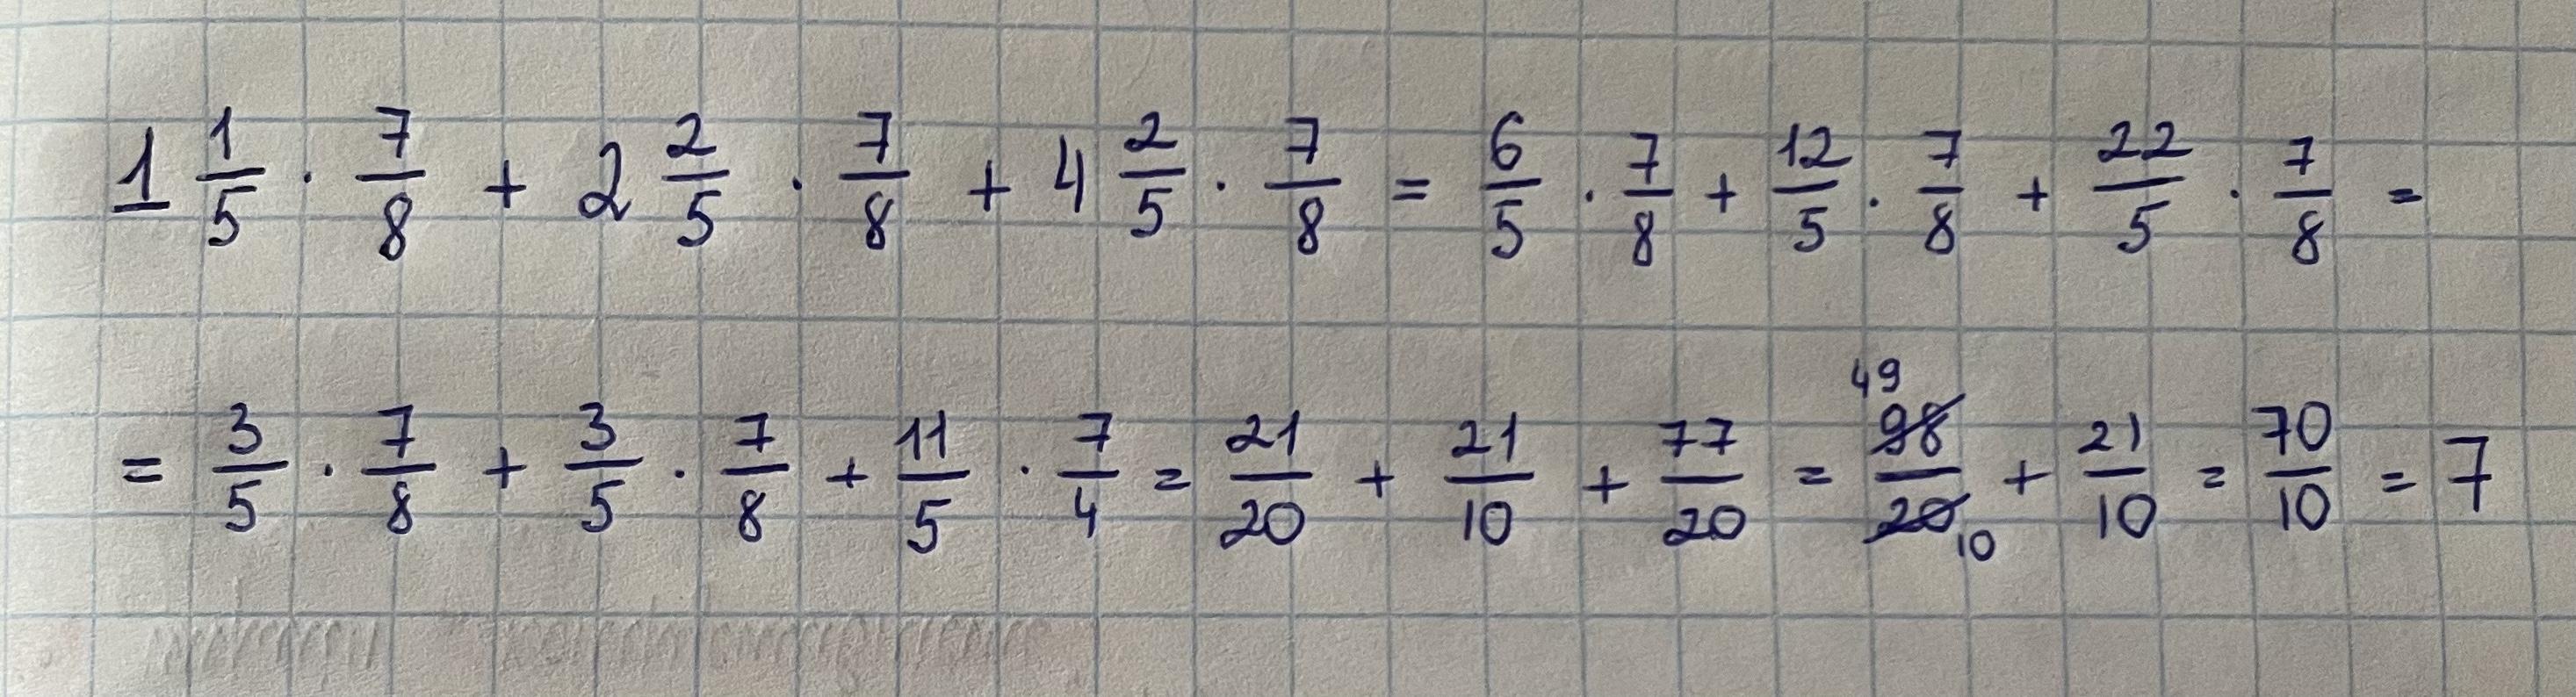 1 1/5 · 7/8 + 2 2/5 · 7/8 + 4 2/5 · 7/8 = 6/5 · 7/8 + 12/5 · 7/8 + 22/5 · 7/8 =
= 3/5 · 7/8 + 3/5 · 7/8 + 11/5 · 7/4 = 21/20 + 21/10 + 77/20 = 49 98/20 10 + 21/10 = 70/10 = 7